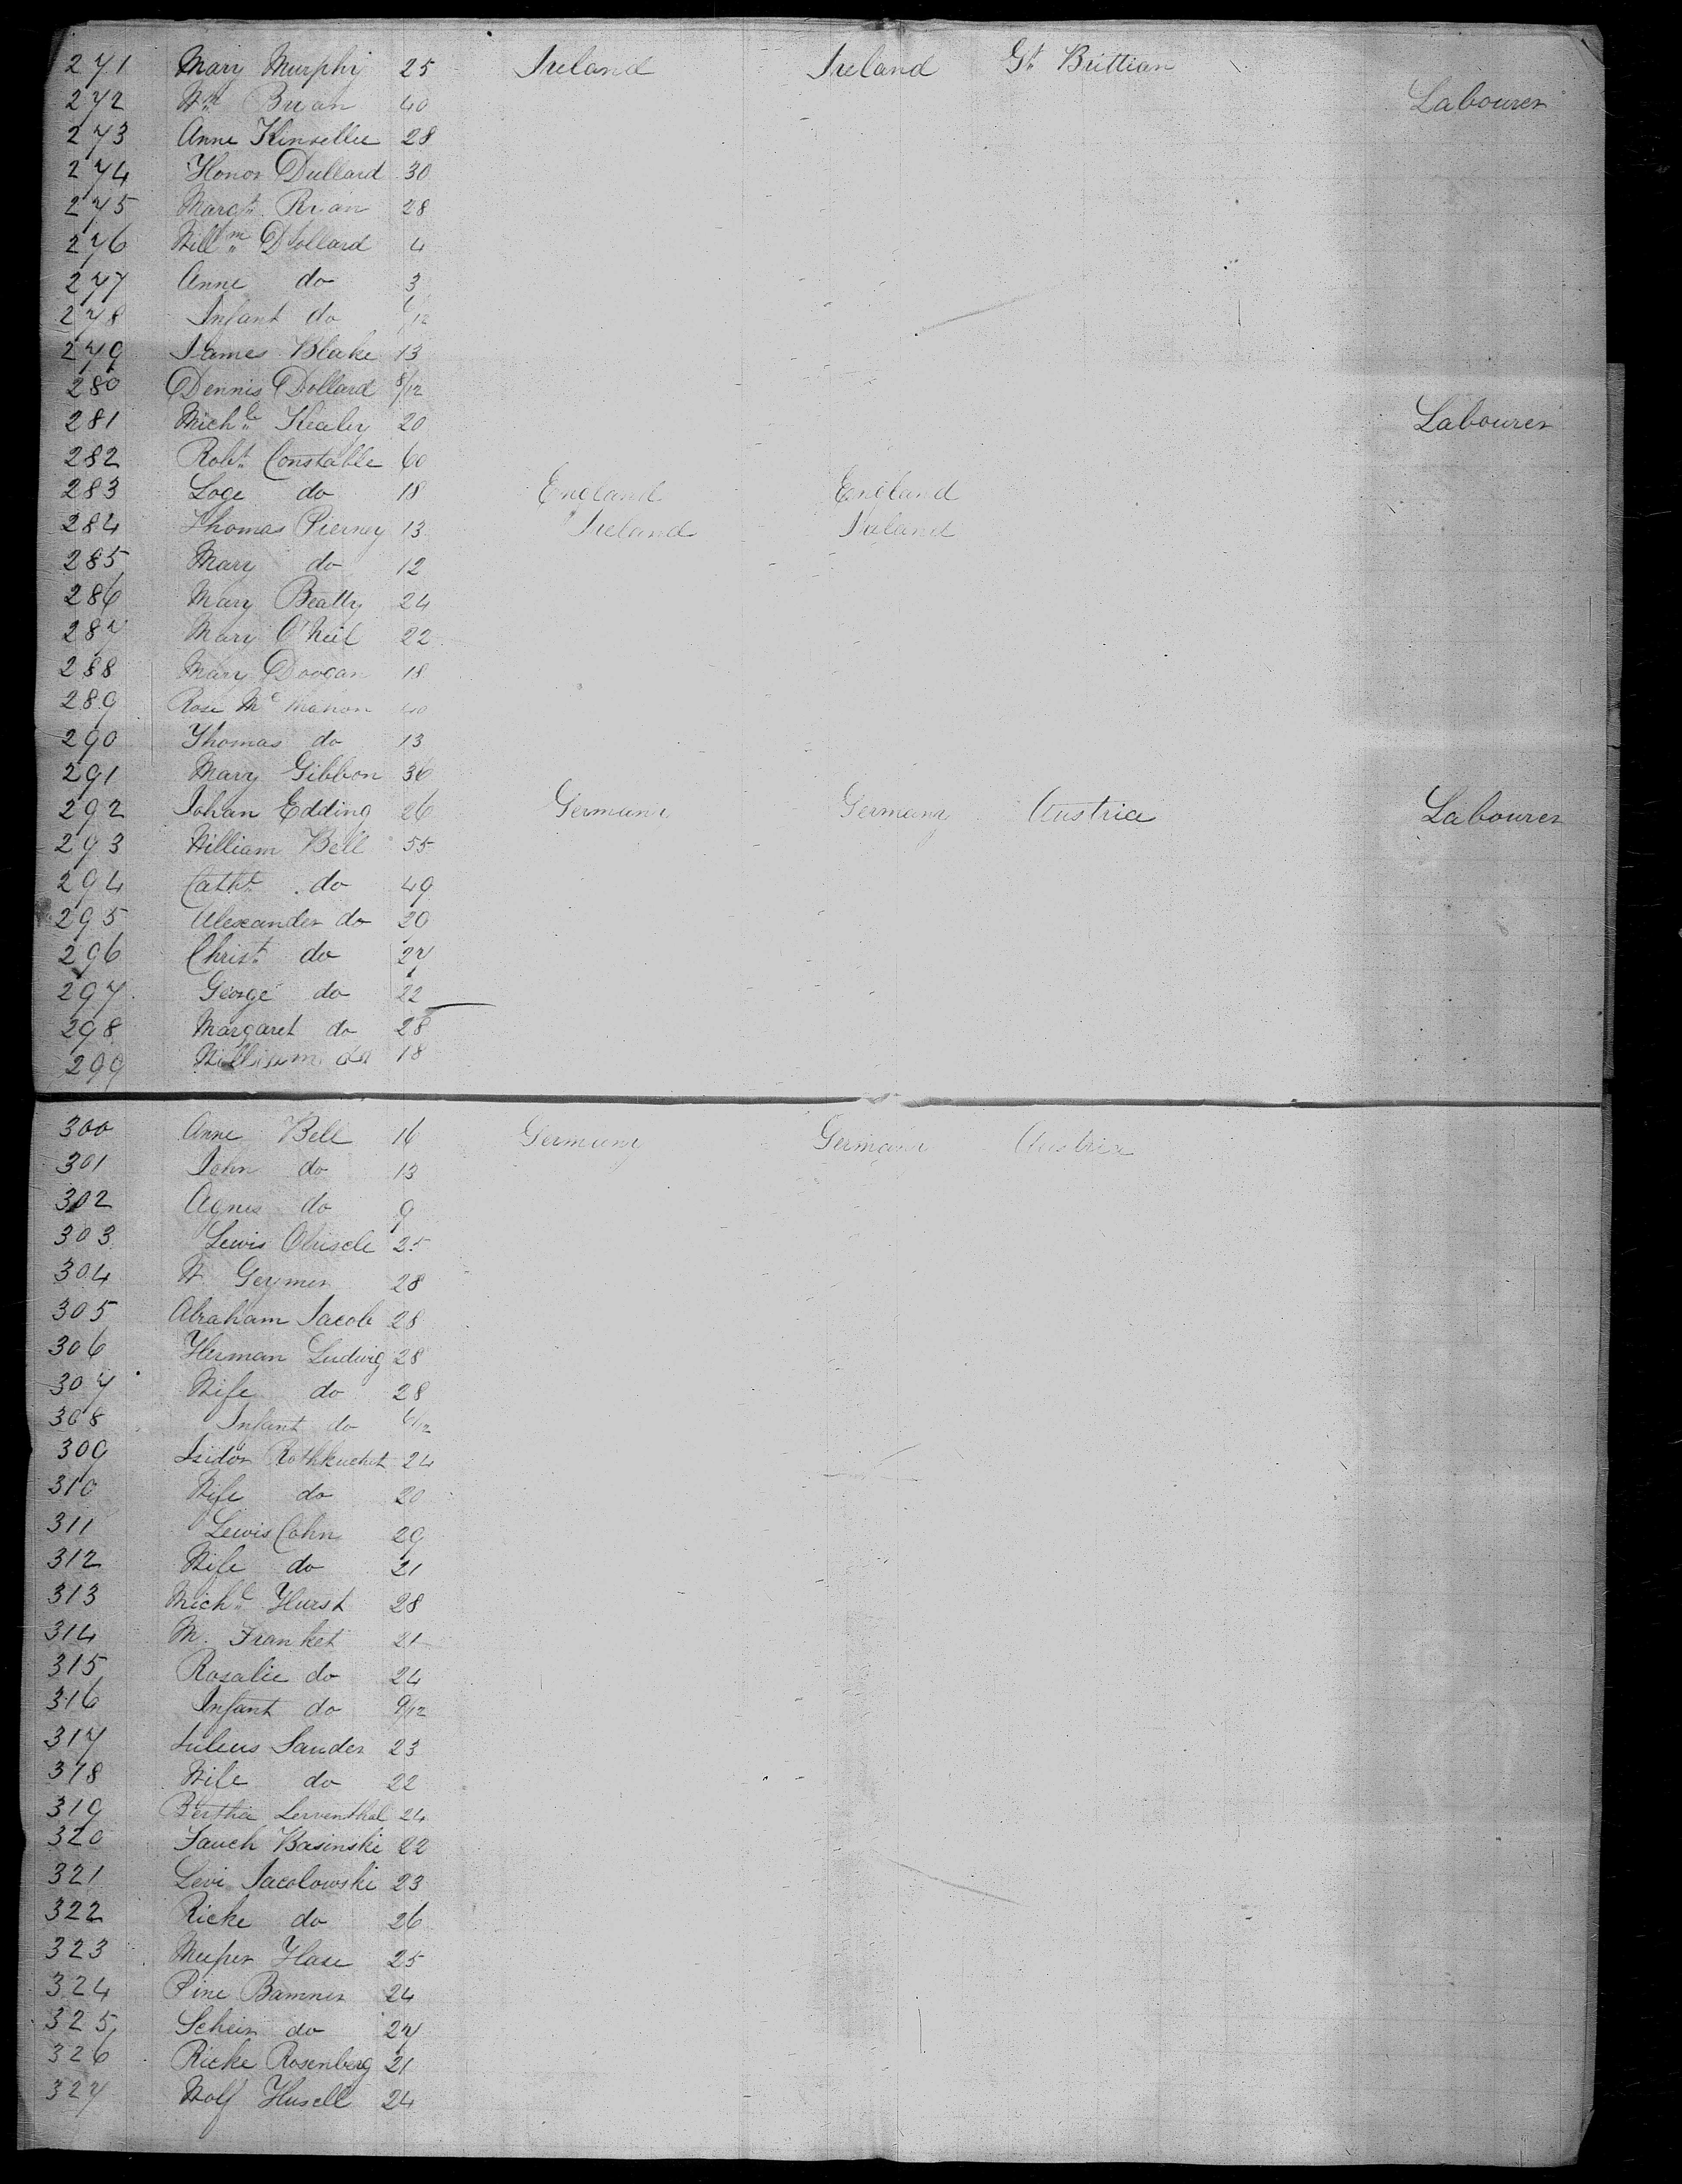 271 Mary Murphy 25 Ireland Ireland Gt Brittian
272 Wm Brian 40 Labourer
273 Anne Kinsellie 28
274 Honor Dullard 30
275 Margt Rian 28
276 Willm Dollard 4
277 Anne do 3
278 Infant do 6/12
279 James Blake 13
280 Dennis Dollard 8/12
281 Michl Kealey 20 Labourer
282 Robt Constable 60
283 Loge do 18 England England
284 Thomas Pierney 13 Ireland Ireland
285 Mary do 12
286 Mary Beatty 24
287 Mary O'Neil 22
288 Mary Doogan 18
289 Rose Mc Mahon 40
290 Thomas do 13
291 Mary Gibbon 36
292 Johan Edding 26 Germany Germany Austria Labourer
293 William Bell 55
294 Catht do 49
295 Alexander do 20
296 Christ do 27
297 George do 22
298 Margaret do 28
299 William do 18
300 Anne Bell 16 Germany Germany Austria
301 John do 13
302 Agnes do 9
303 Lewis 25
304 W. Geymer 28
305 Abraham Jacob 28
306 Herman Ludwig 28
307 Wife do 28
308 Infant do 6/12
309 Isidor 24
310 Wife do 20
311 Lewis Cohn 29
312 Wife do 21
313 Michl Hurst 28
314 M. Franket 21
315 Rosalie do 24
316 Infant do 9/12
317 Juleus Sander 23
318 Wife do 22
319 Bertha Lerventhal 24
320 Basinski 22
321 Levi Jacolowski 23
322 Ricke do 26
323 Hase 25
324 Pine Bamner 24
325 Schein do 27
326 Ricke Rosenberg 21
327 Wolf Husell 24